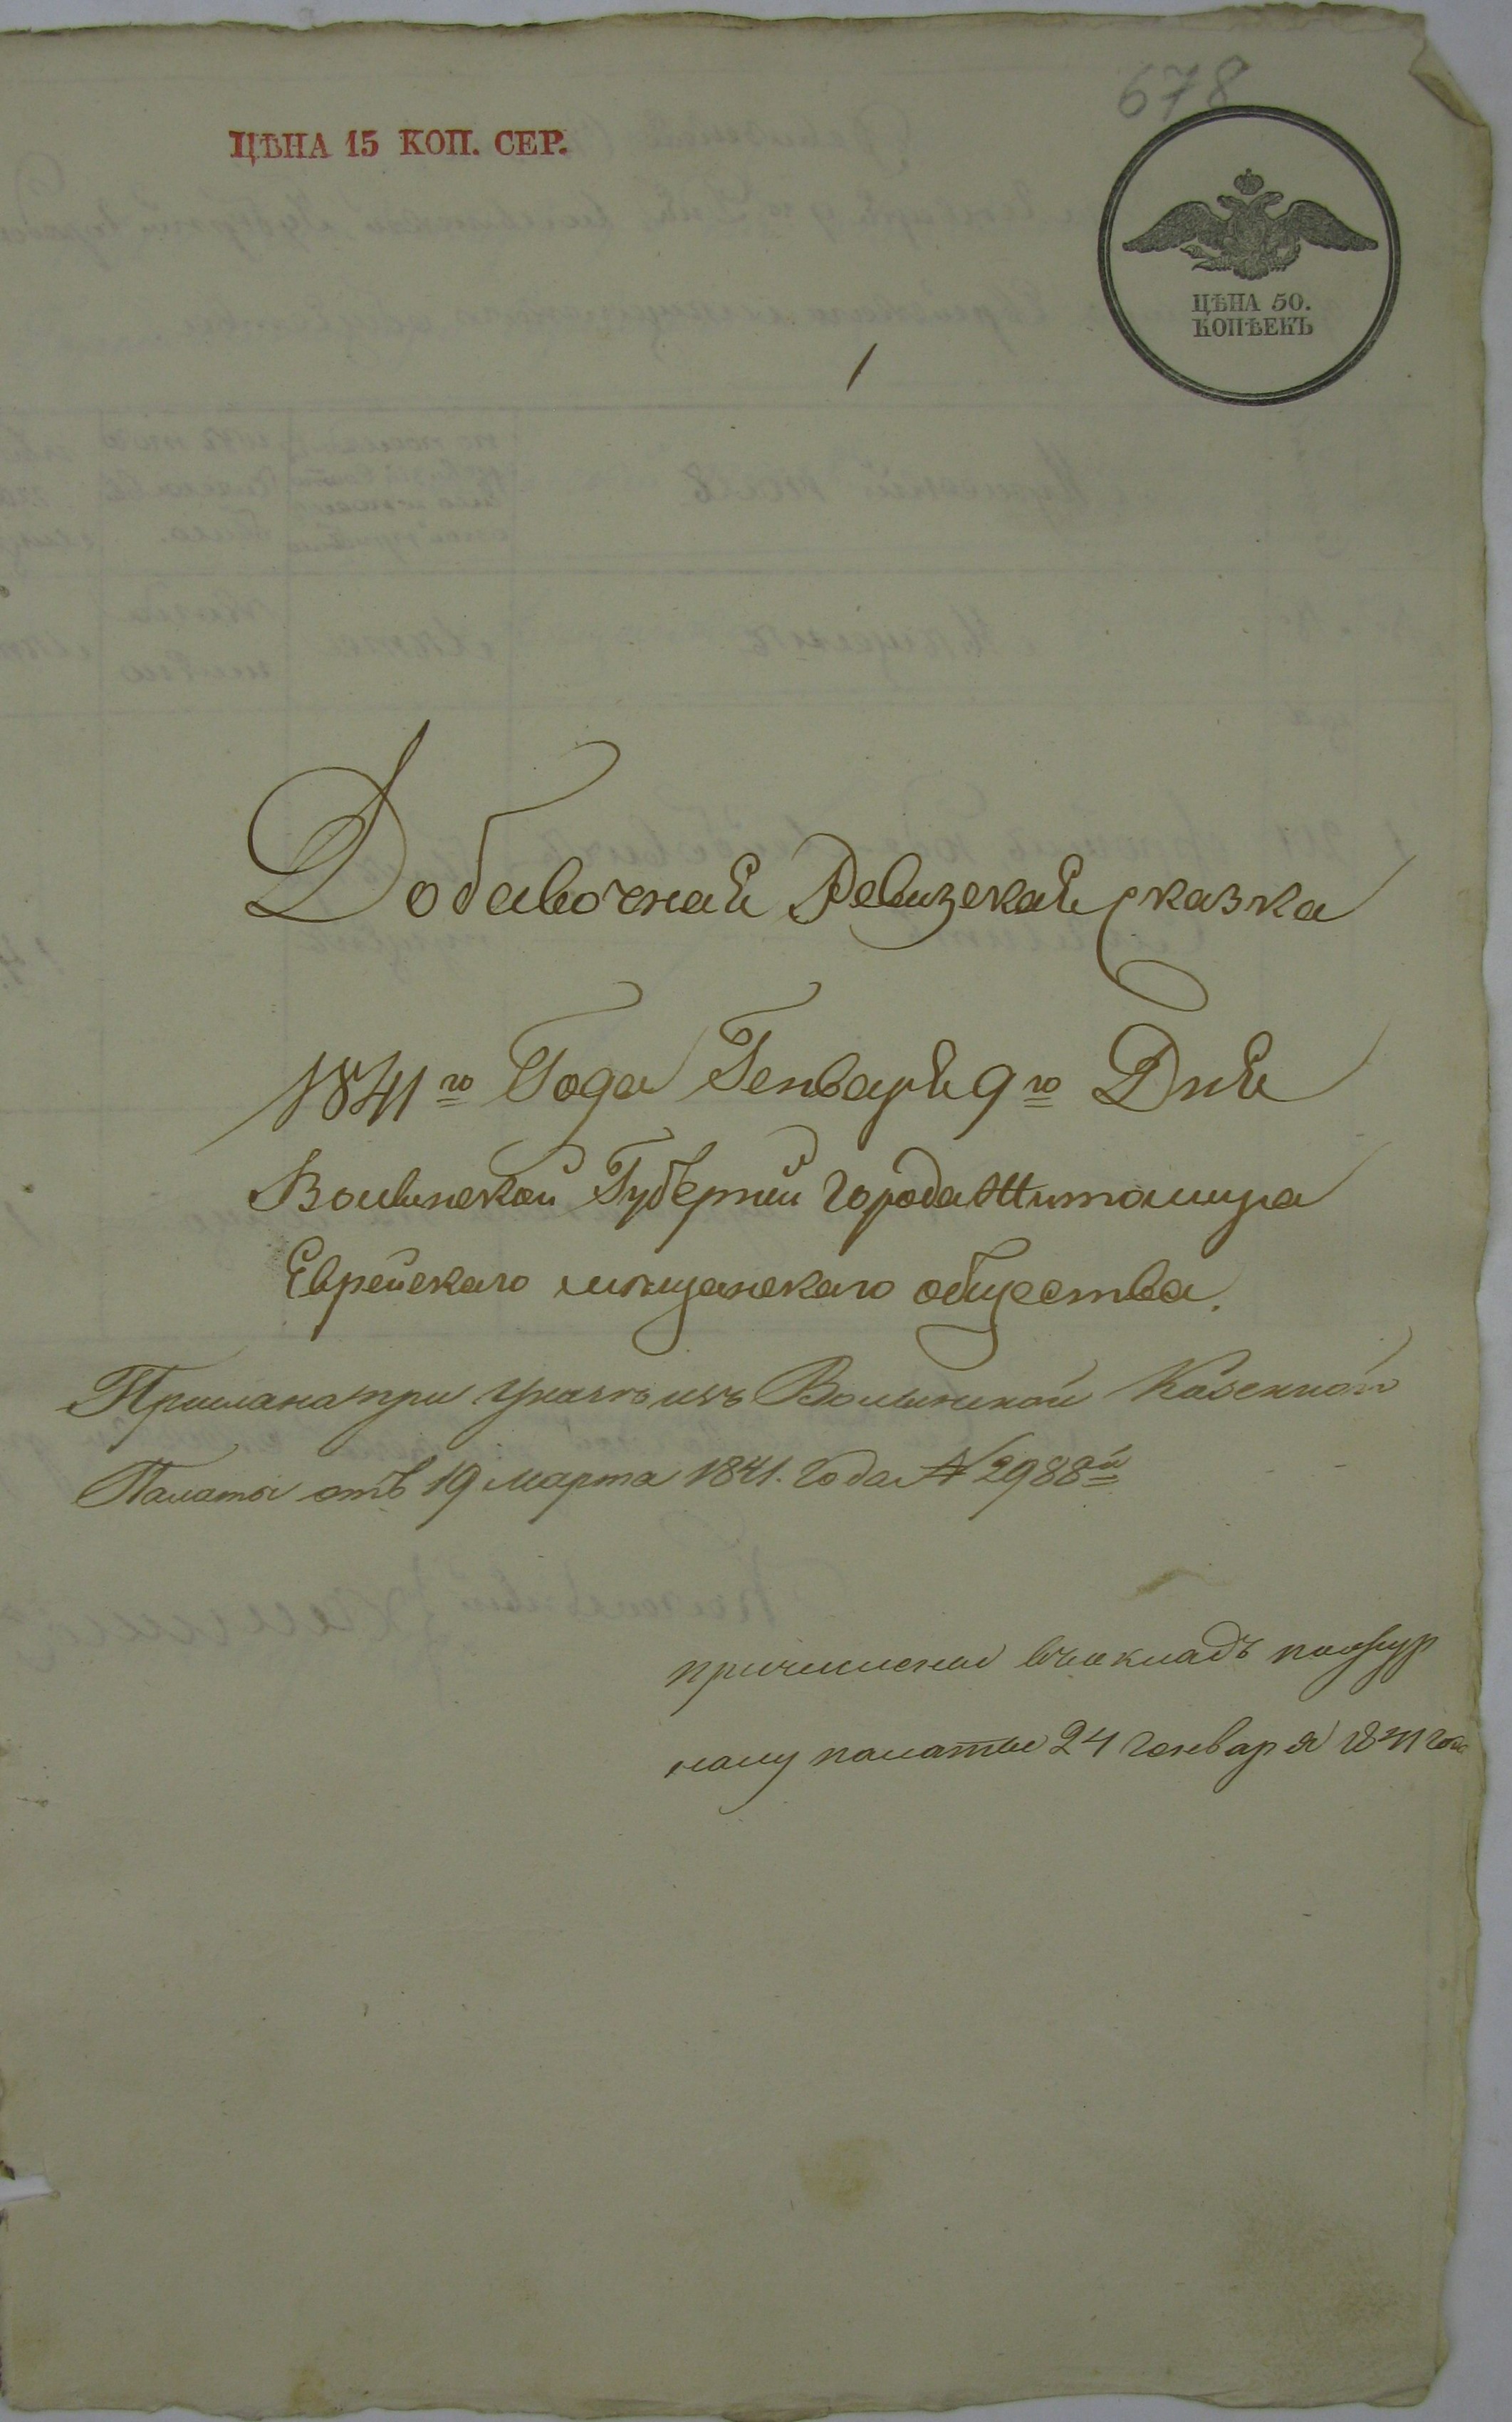 678
ЦѢНА 15 КОП. СЕР.
ЦѢНА 50.
КОПѢЕКЪ
1
Добавочная Ревизская сказка
1841го Года Генваря 9го Дня
Волынской Губернии города Житомира
Еврейскаго мѣщанскаго общества.
Прислана при указѣ изъ Волынской Казенной
Палаты отъ 19 марта 1841. года № 2988й
причислены въ окладъ по журналу палаты 24 генваря 1841 года